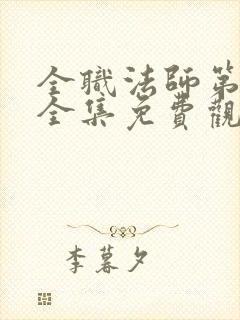 全職法師第
全集免費觀
李暮夕